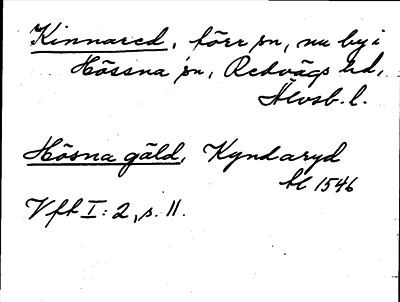 Kinnared, förr sn, nu by i
Hössna sn, Redvägs hd,
Älvsb. l.
Hösna gäld, Kyndaryd
1546
Vft I: 2, s. 11.